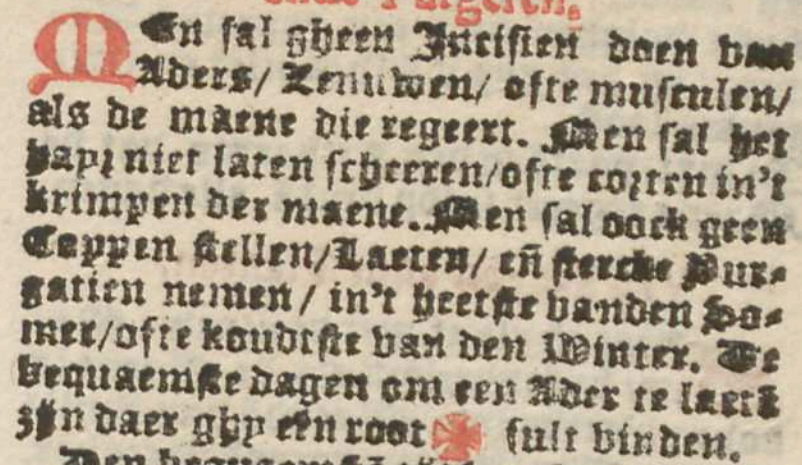 ende Purgeren.
MEn sal gheen Incisien doen van
Aders/ Zenuwen/ ofte musculen/
als de maene die regeert. Men sal het
hayꝛ niet laten scheeren/ofte coꝛten in't
krimpen der maene. Men sal oock geen
Coppen stellen/Laeten/ eñ stercke Pur-
gatien nemen/ in't heetste vanden So-
mer/ofte koudtste van den Winter. De
bequaemste dagen om een Ader te laetẽ
zijn daer ghy een root ✠ sult vinden.